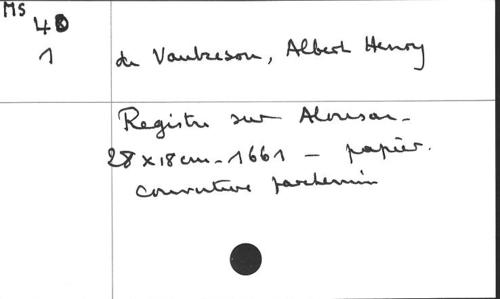 MS
40
1
de Vautreson, Albert Henry
Registre sur
28 x 18 cm - 1661 - papier.
couverture parchemin